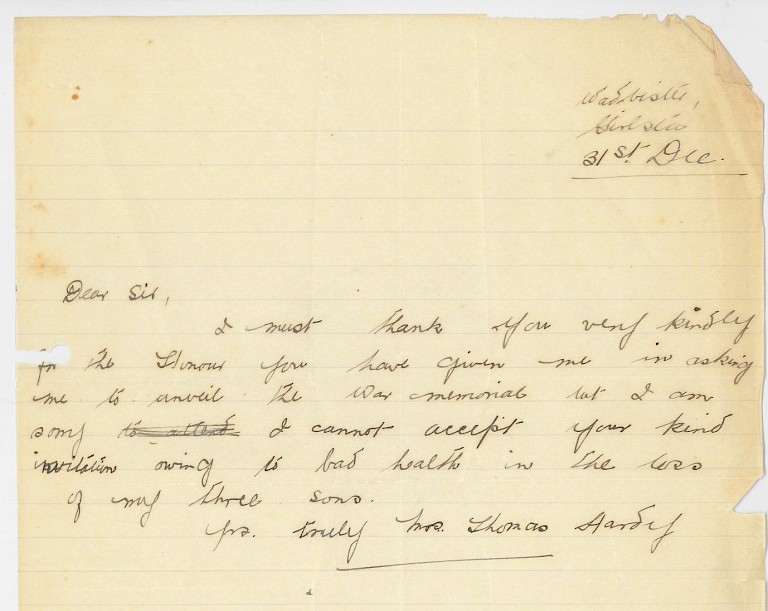 Wadbister,
Girlsta
31st Dec.
Dear Sir,
I must thank you very kindly
for the Honour you have given me in asking
me to unveil the War memorial but I am
sorry to attend I cannot accept your kind
invitation owing to bad health in the loss
of my three sons.
yrs. truely Mrs. Thomas Hardy